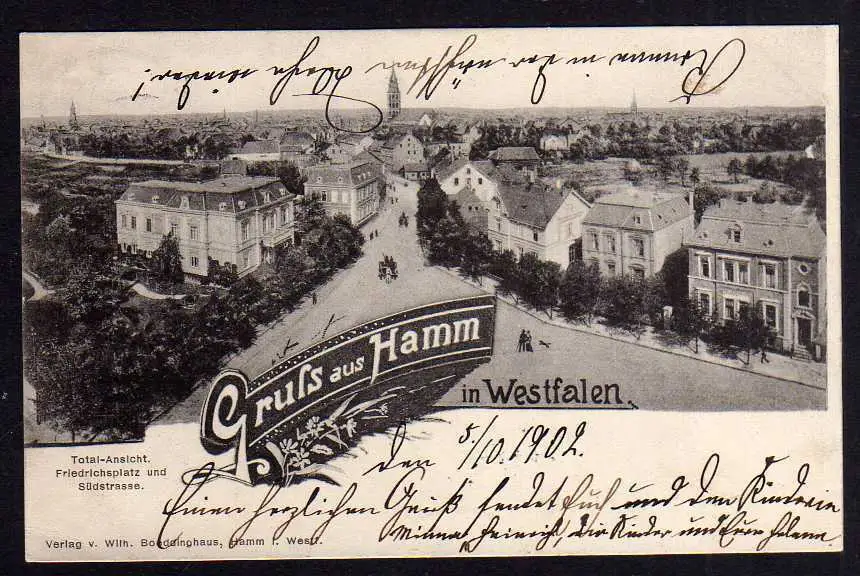 Gruss aus Hamm
in Westfalen.
Total-Ansicht.
Friedrichsplatz und
Südstrasse.
den 5/10.1902.
Einen herzlichen Gruß sendet Euch und den Kindern
Minna, Heinrich, die Kinder und Eure Helene
Verlag v. Wilh. Boeddinghaus, Hamm i. Westf.